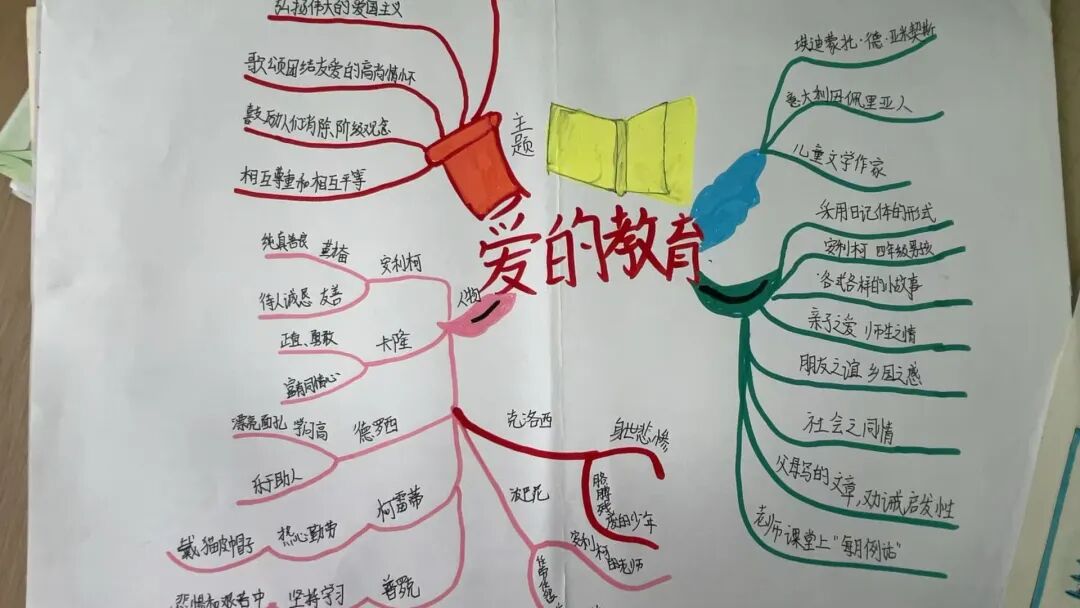 弘扬伟大的爱国主义
歌颂团结友爱的高尚情怀
鼓励人们消除阶级观念
相互尊重和相互平等
主题
爱的教育
埃迪蒙托·德·亚米契斯
意大利因佩里亚人
儿童文学作家
采用日记体的形式
安利柯 四年级男孩
各式各样的小故事
亲子之爱 师生之情
朋友之谊 乡国之感
社会之同情
父母写的文章,劝诫启发性
老师课堂上"每月例话"
人物
安利柯
纯真善良 勤奋
待人诚恳 友善
卡隆
正直、勇敢
富有同情心
德罗西
漂亮面孔 学习高
乐于助人
柯雷蒂
热心勤劳
戴猫皮帽子
普罗克
坚持学习
悲惨和艰苦中
克洛西
身世悲惨
胳膊残废的少年
波巴尼
安利柯的老师